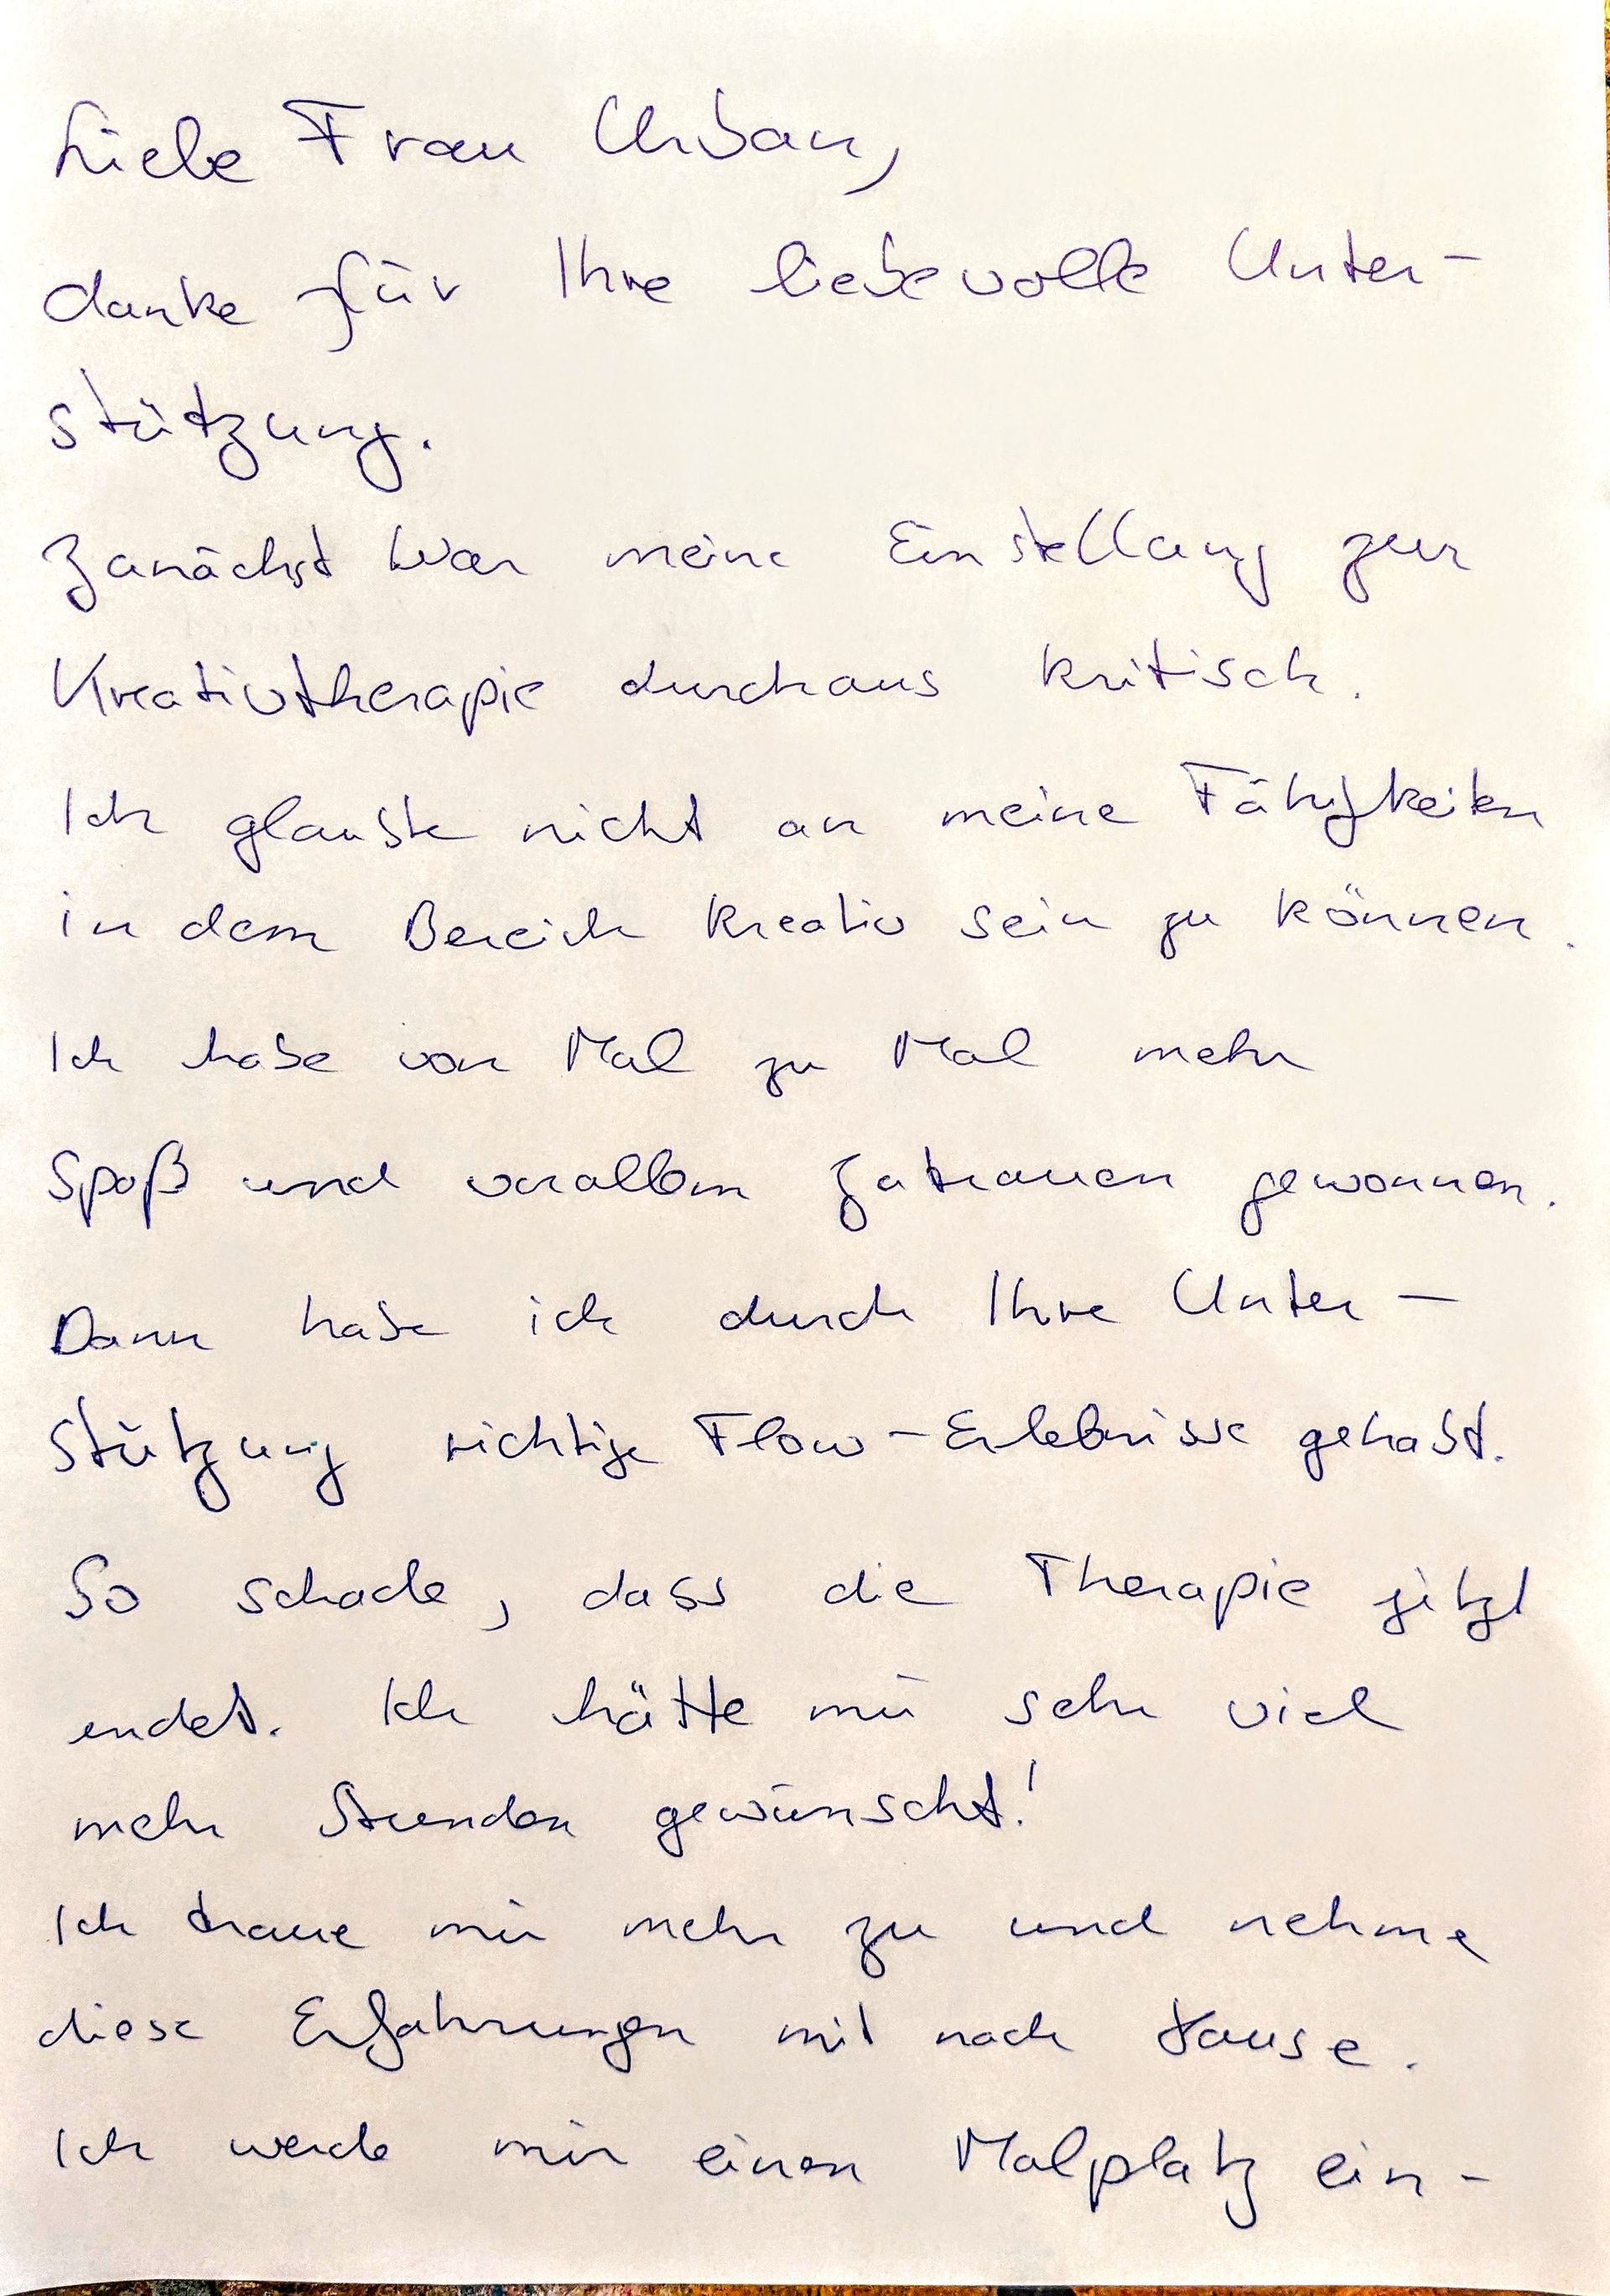 Liebe Frau Urban,
danke für Ihre liebevolle Unter-
stützung.
Zunächst war meine Einstellung zur
Kreativtherapie durchaus kritisch.
Ich glaubte nicht an meine Fähigkeiten
in dem Bereich kreativ sein zu können.
Ich habe von Mal zu Mal mehr
Spaß und vorallem Zutrauen gewonnen.
Dann habe ich durch Ihre Unter-
stützung richtige Flow-Erlebnisse gehabt.
So schade, dass die Therapie jetzt
endet. Ich hätte mir sehr viel
mehr Stunden gewünscht!
Ich traue mir mehr zu und nehme
diese Erfahrungen mit nach Hause.
Ich werde mir einen Malplatz ein-